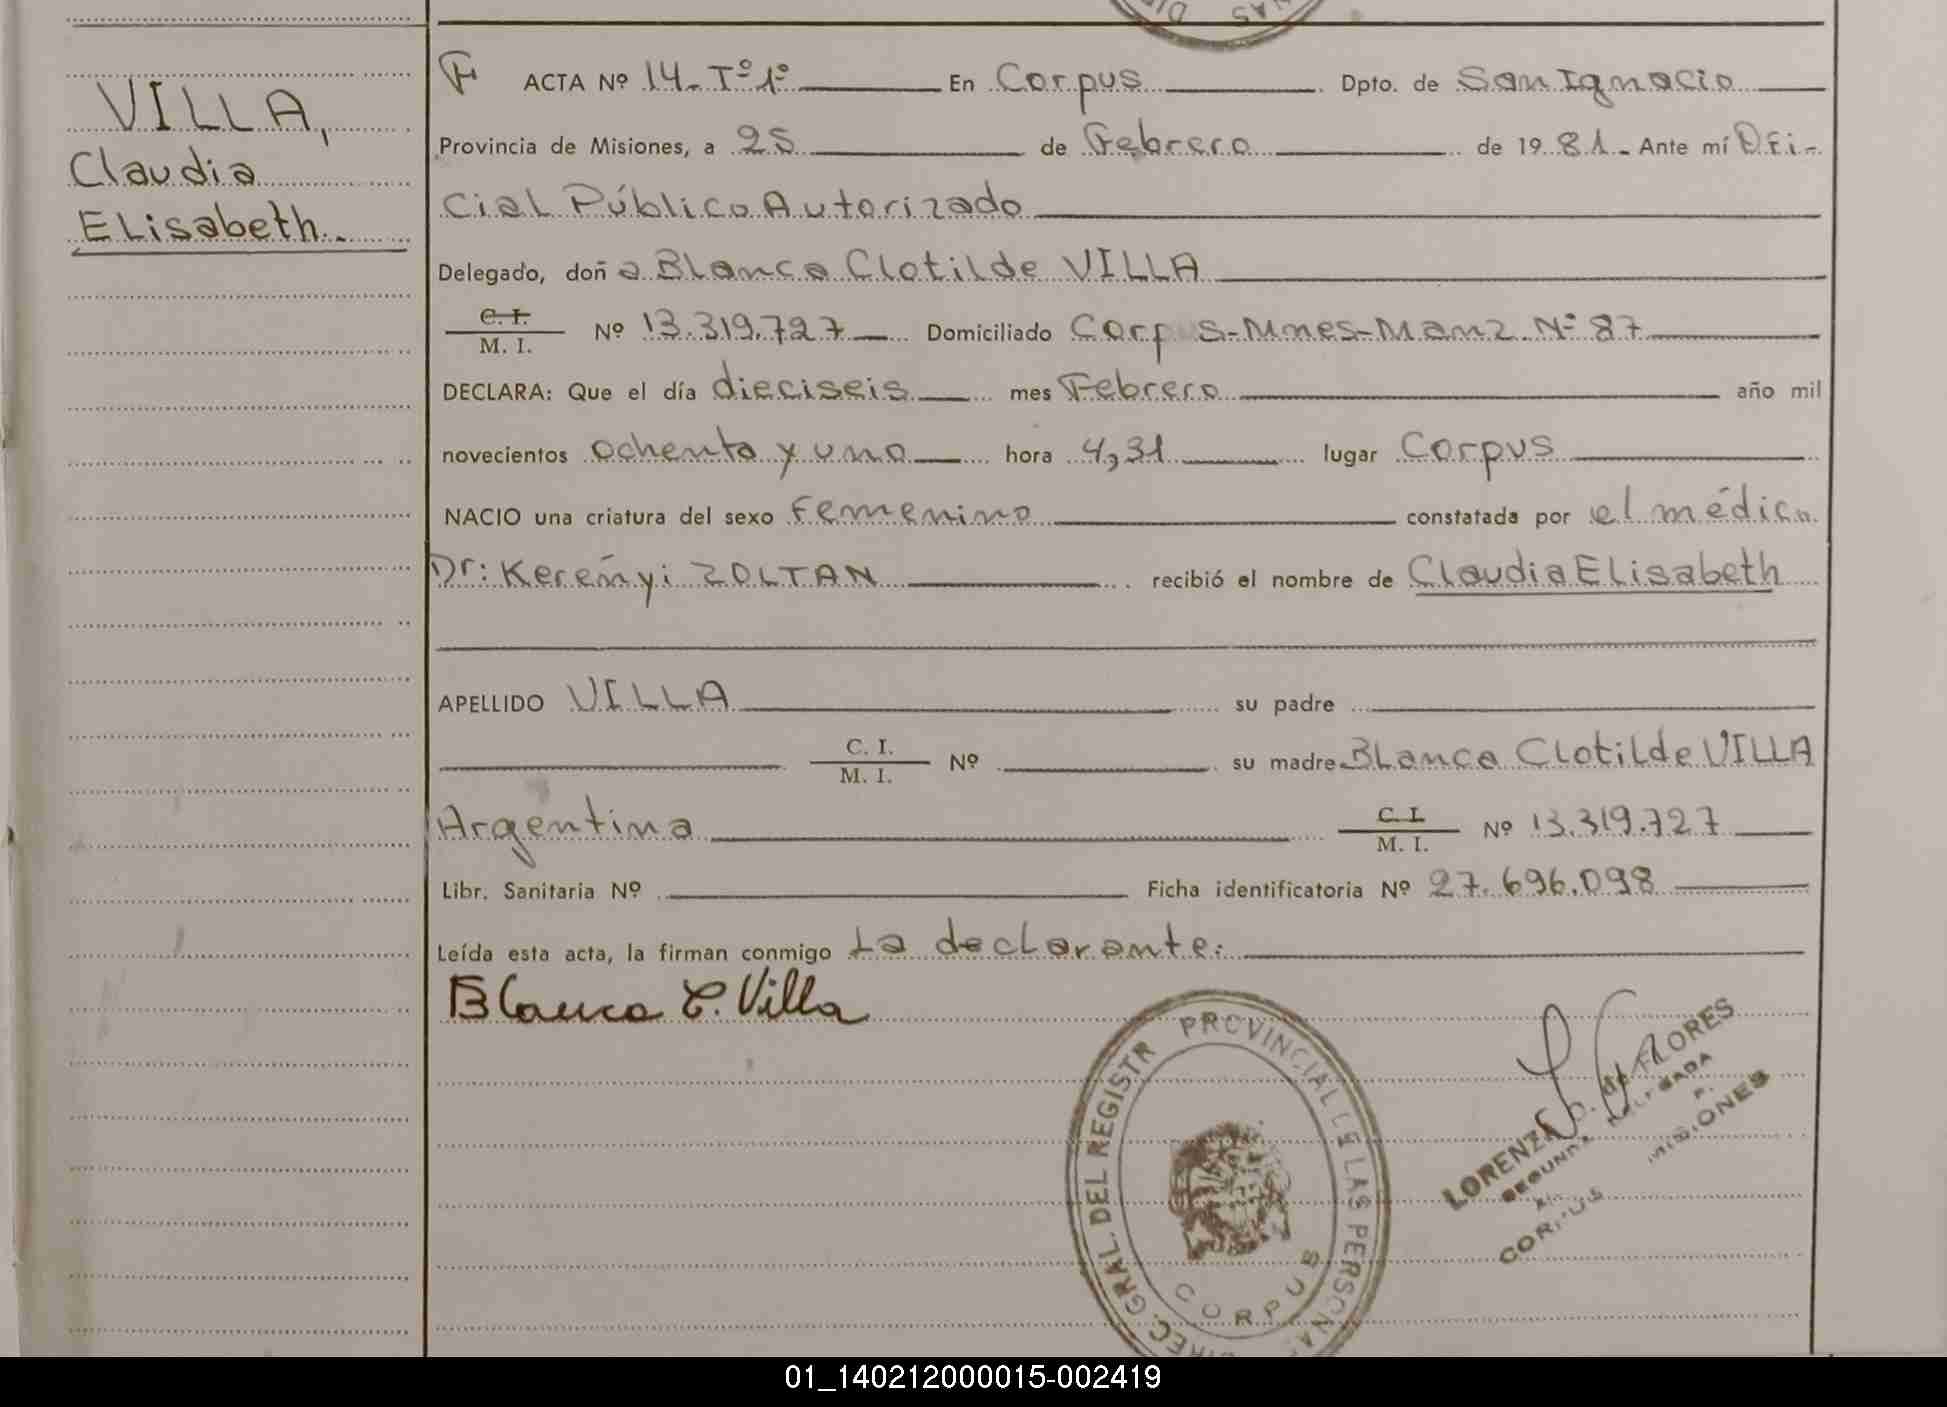 VILLA,
Claudia
ELisabeth.
F ACTA Nº 14-Tº1º En Corpus Dpto. de San Ignacio
Provincia de Misiones, a 25 de Febrero de 1981- Ante mí Ofi-
cial Público Autorizado
Delegado, doña Blanca Clotilde VILLA
C. I.
M. I. Nº 13.319.727 Domiciliado Corpus-Mnes-Manz. Nº 87
DECLARA: Que el día dieciseis mes Febrero año mil
novecientos ochenta y uno hora 4,31 lugar Corpus
NACIO una criatura del sexo Femenino constatada por el médico
Dr: Kereñyi ZOLTAN recibió el nombre de Claudia ELisabeth
APELLIDO VILLA su padre
C. I.
M. I. Nº su madre Blanca Clotilde VILLA
Argentina C. I.
M. I. Nº 13.319.727
Libr. Sanitaria Nº Ficha identificatoria Nº 27.696.098
Leída esta acta, la firman conmigo La declarante:
Blanca C. Villa
DIREC. GRAL. DEL REGISTR PROVINCIAL DE LAS PERSONAS
CORPUS
LORENZA de FLORES
SEGUNDA DELEGADA
CORPUS MISIONES
01_140212000015-002419